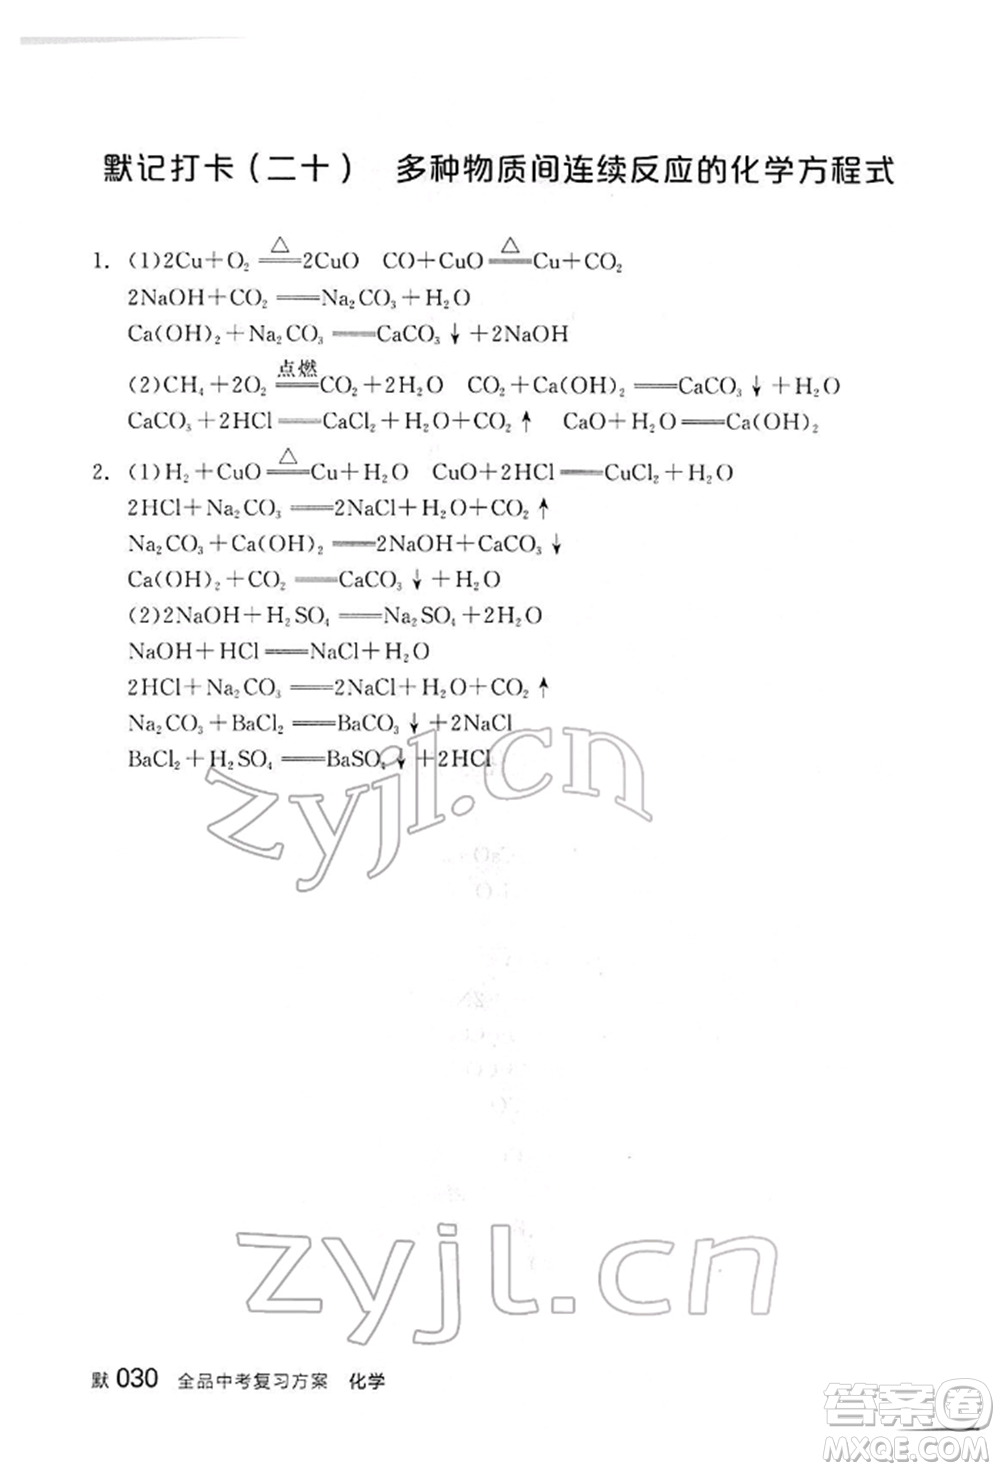 默记打卡（二十） 多种物质间连续反应的化学方程式
1. (1)2Cu+O₂ =△= 2CuO CO+CuO =△= Cu+CO₂
2NaOH+CO₂ == Na₂CO₃+H₂O
Ca(OH)₂+Na₂CO₃ == CaCO₃↓+2NaOH
(2)CH₄+2O₂ =点燃= CO₂+2H₂O CO₂+Ca(OH)₂ == CaCO₃↓+H₂O
CaCO₃+2HCl == CaCl₂+H₂O+CO₂↑ CaO+H₂O == Ca(OH)₂
2. (1)H₂+CuO =△= Cu+H₂O CuO+2HCl == CuCl₂+H₂O
2HCl+Na₂CO₃ == 2NaCl+H₂O+CO₂↑
Na₂CO₃+Ca(OH)₂ == 2NaOH+CaCO₃↓
Ca(OH)₂+CO₂ == CaCO₃↓+H₂O
(2)2NaOH+H₂SO₄ == Na₂SO₄+2H₂O
NaOH+HCl == NaCl+H₂O
2HCl+Na₂CO₃ == 2NaCl+H₂O+CO₂↑
Na₂CO₃+BaCl₂ == BaCO₃↓+2NaCl
BaCl₂+H₂SO₄ == BaSO₄↓+2HCl
zyjl.cn
zyjl.cn
默 030 全品中考复习方案 化学
答案圈
MXQE.COM